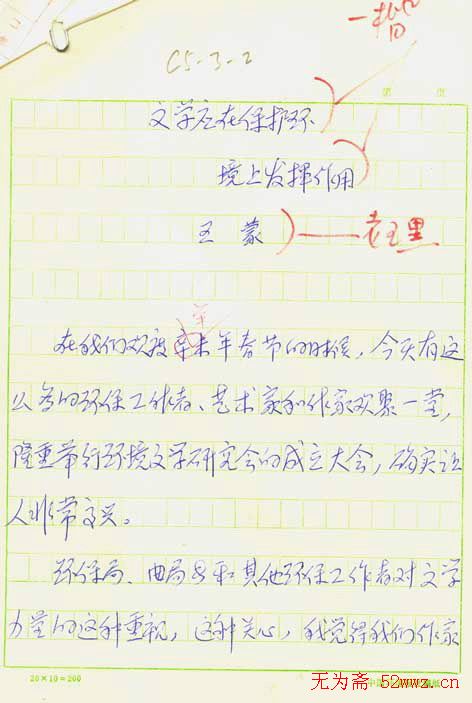 一楷
C5-3-2
第 页
文学应在保护环
境上发挥作用
王 蒙
老五黑
辛
在我们欢度辛未年春节的时候，今天有这
么多的环保工作者、艺术家和作家欢聚一堂，
隆重举行环境文学研究会的成立大会，确实让
人非常高兴。
环保局、曲局长和其他环保工作者对文学
力量的这种重视，这种关心，我觉得我们作家
20×10=200
无为斋 52wwz.cn